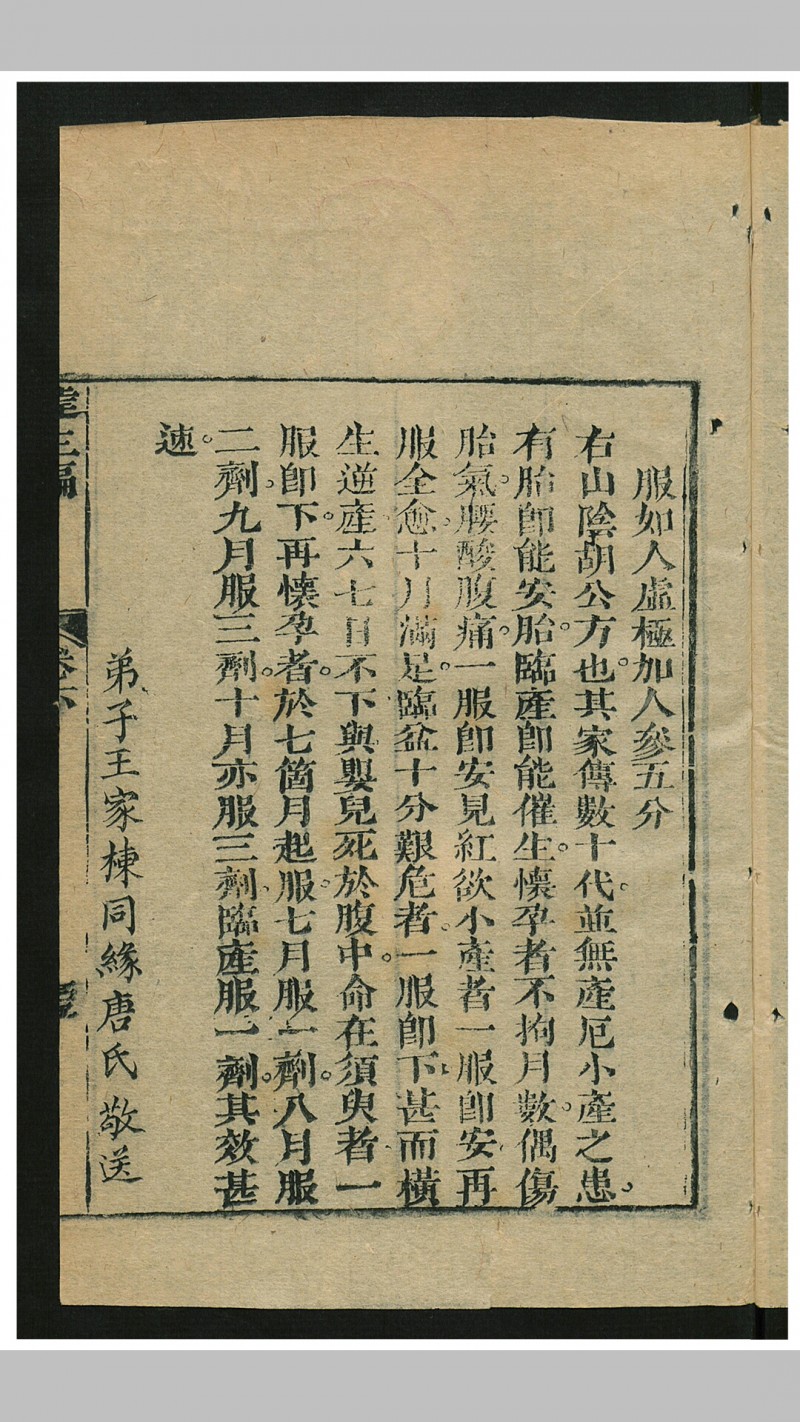 服如人虛極加人參五分
右山陰胡公方也。其家傳數十代。並無產厄小產之患。
有胎卽能安胎。臨產卽能催生。懷孕者不拘月數。偶傷
胎氣。腰酸腹痛。一服卽安。見紅欲小產者一服卽安。再
服全愈。十月滿足。臨盆十分艱危者。一服卽下。甚而橫
生逆產。六七日不下。與嬰兒死於腹中。命在須臾者。一
服卽下。再懷孕者。於七箇月起服。七月服一劑。八月服
二劑。九月服三劑。十月亦服三劑。臨產服一劑。其效甚
速。
弟子王家棟同緣唐氏敬送
達生編 卷下